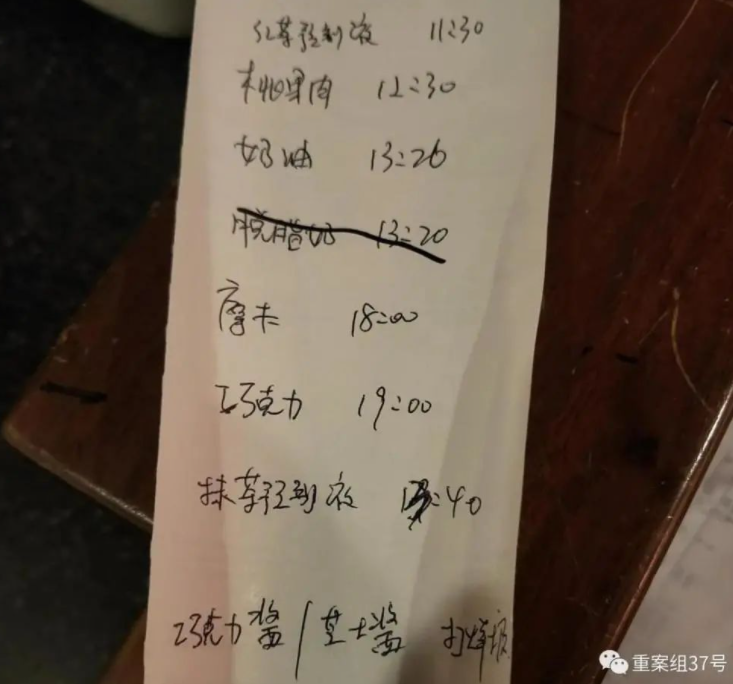 红茶预制液 11:30
桃果肉 12:30
奶油 13:26
脱脂奶 13:20
摩卡 18:00
巧克力 19:00
抹茶预制液 :40
巧克力酱/芝士酱 打烊
重案组37号